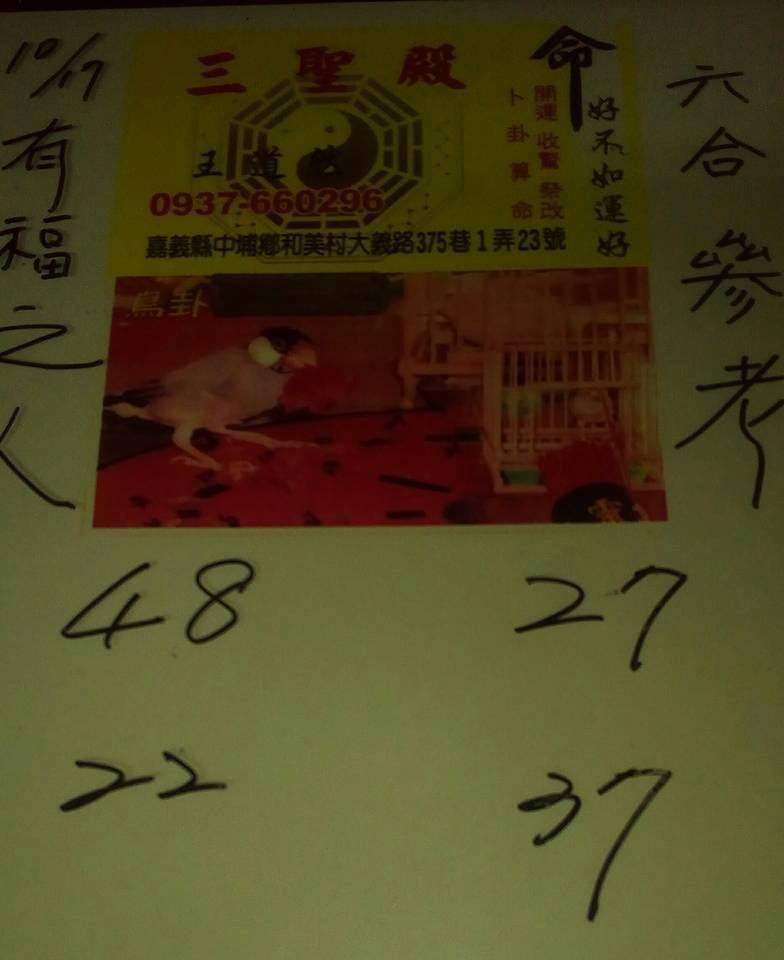 10/17有福之人
三聖殿
王道
0937-660296
嘉義縣中埔鄉和美村大義路375巷1弄23號
命好不如運好
開運 收驚 祭改
卜卦算命
鳥卦
六合參考
48 27
22 37